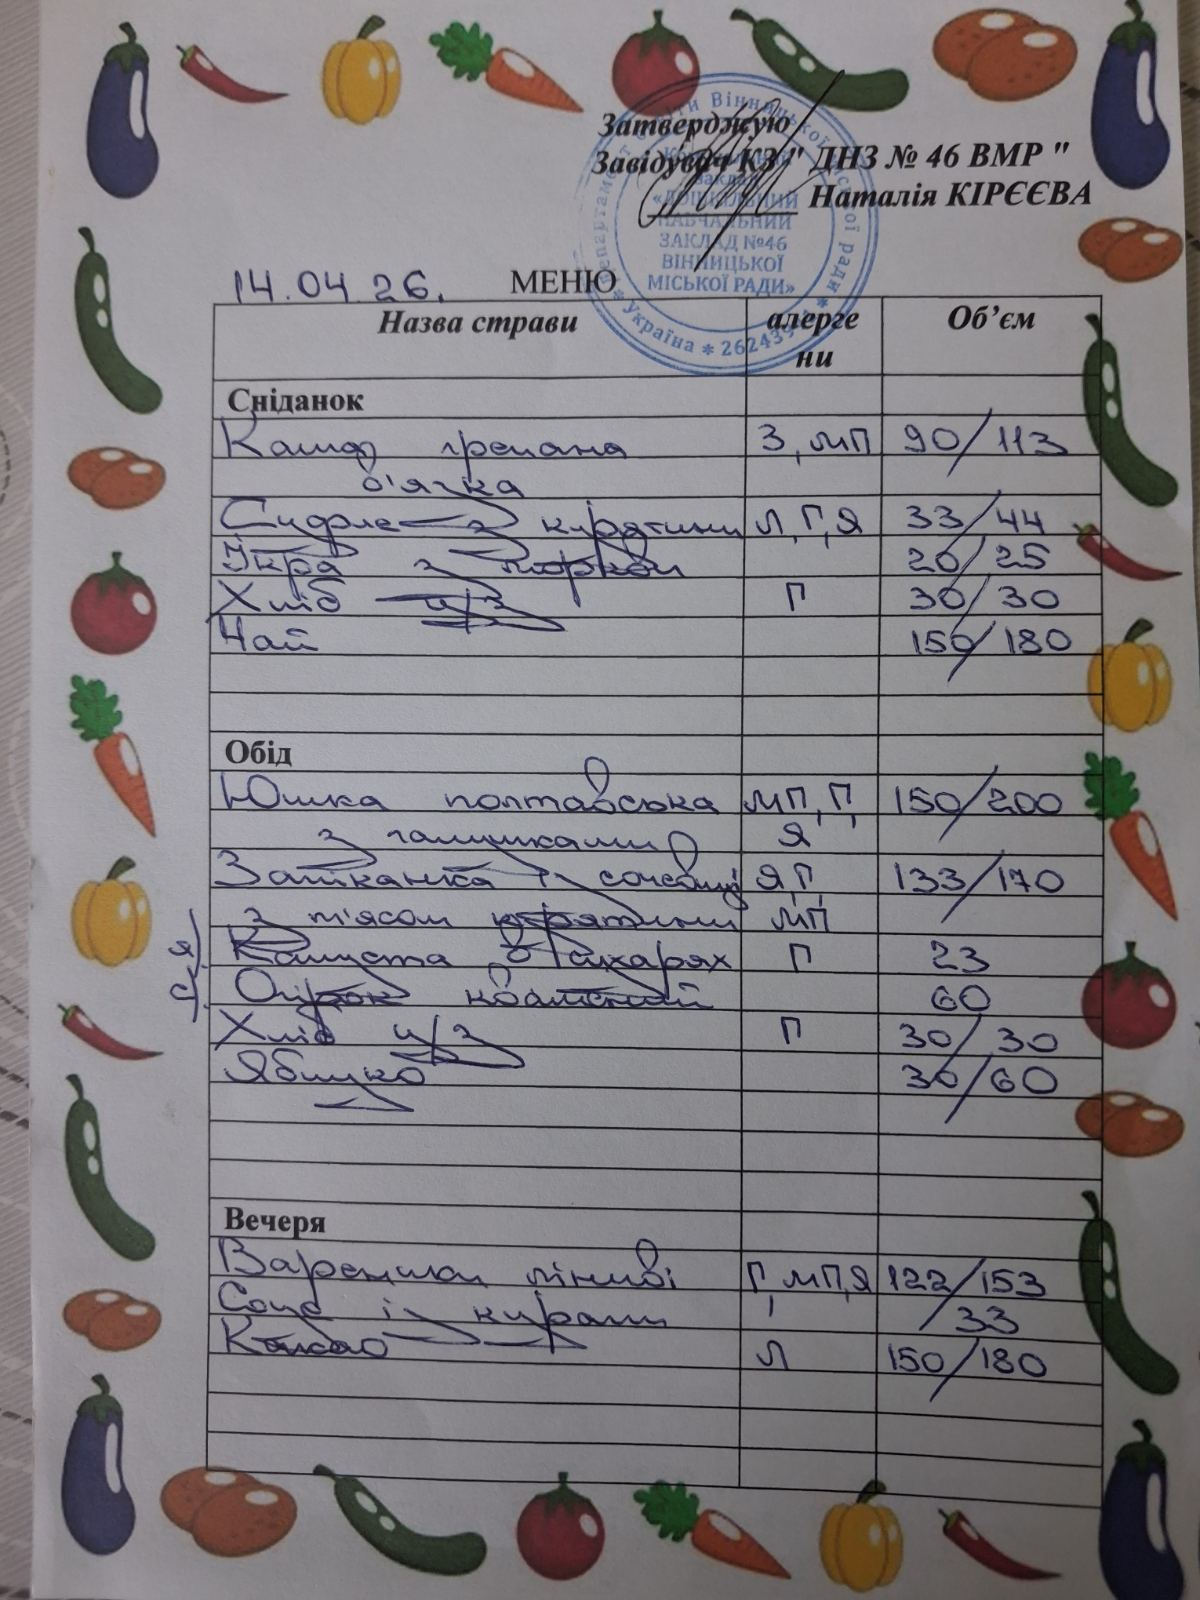 Затверджую
Завідувач КЗ " ДНЗ № 46 ВМР "
Наталія КІРЄЄВА
Департамент освіти Вінницької міської ради * Україна *
«ДОШКІЛЬНИЙ
НАВЧАЛЬНИЙ
ЗАКЛАД №46
ВІННИЦЬКОЇ
МІСЬКОЇ РАДИ»
14.04.26. МЕНЮ
Назва страви алерге Об'єм
ни
Сніданок
Каша гречана З, МП 90/113
в'язка
Суфле з курятини Л, Г, Я 33/44
Ікра з моркви 20/25
Хліб ц/з Г 30/30
Чай 150/180
Обід
Юшка полтавська МП, Г, 150/200
з галушками Я
Запіканка із сочевиці Я, Г, 133/170
з м'ясом курятини МП
я) Капуста в сухарях Г 23
с) Огірок квашений 60
Хліб ц/з Г 30/30
Яблуко 30/60
Вечеря
Вареники ліниві Г, МП, Я 122/153
Соус із кураги /33
Какао Л 150/180